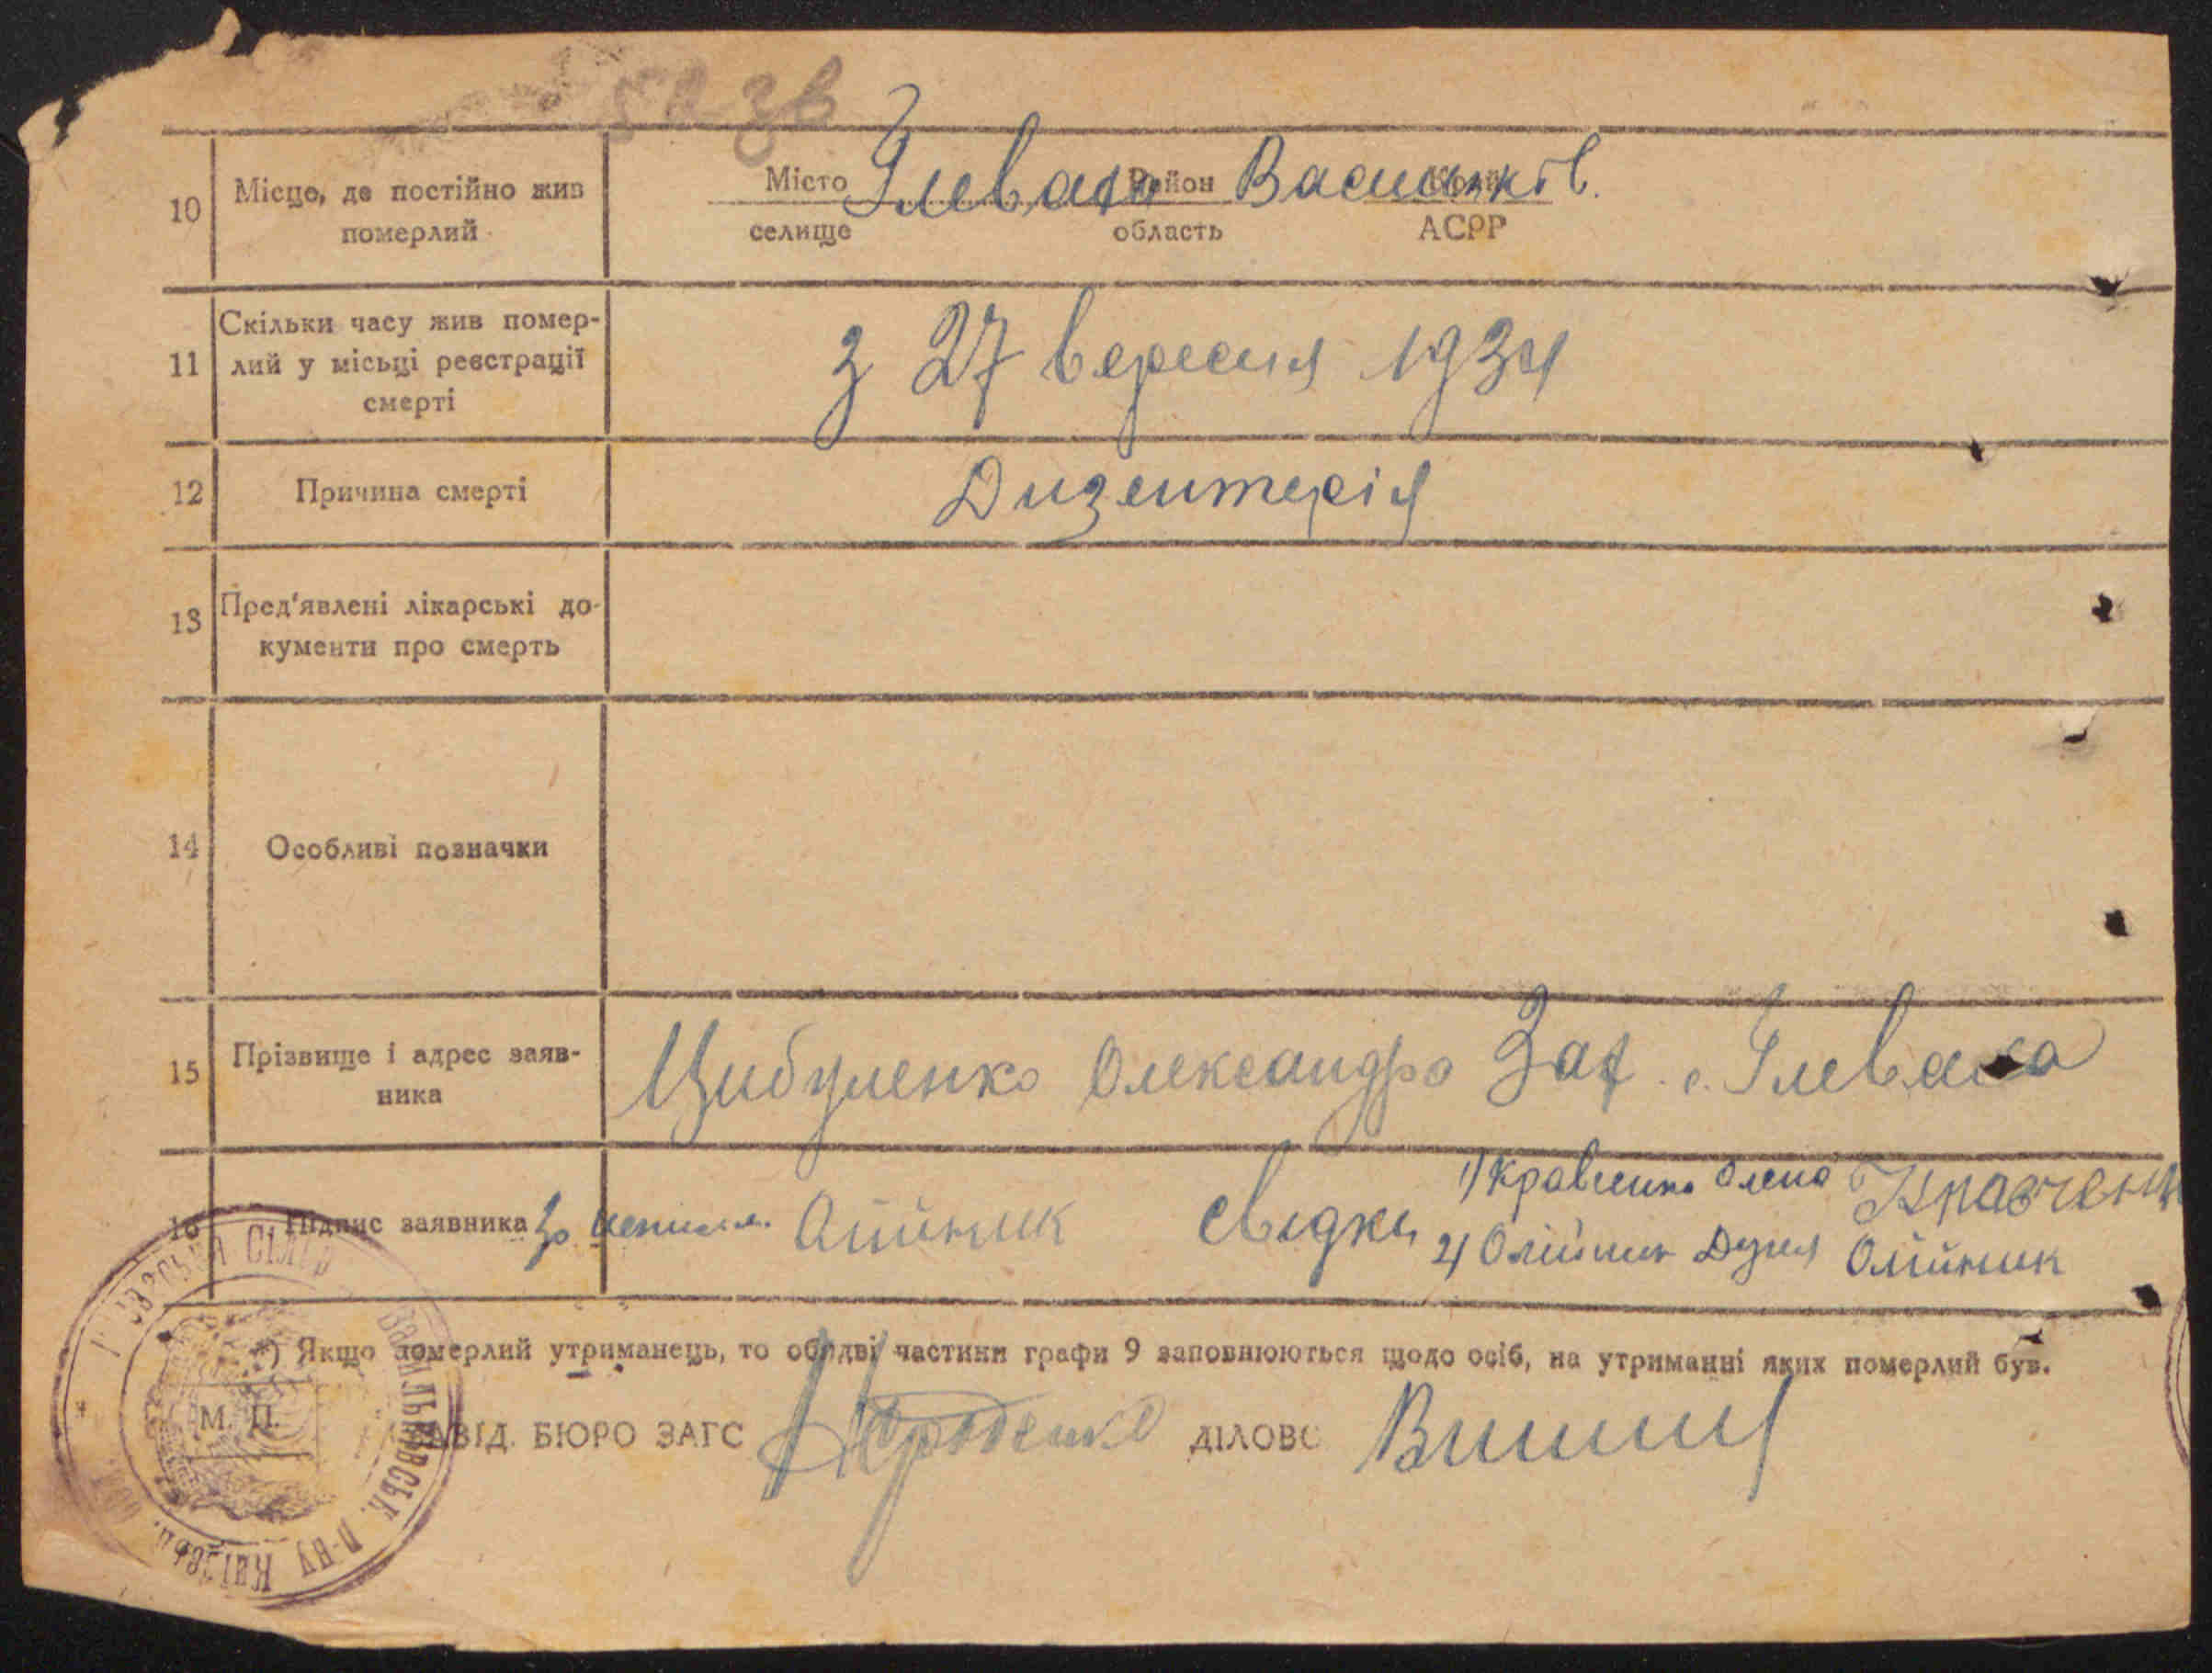 52 зв
10 Місце, де постійно жив померлий
Місто Глеваха Район Васильків. Край
селище область АСРР
11 Скільки часу жив помер-
лий у місьці реєстрації
смерті
з 27 вересня 1934
12 Причина смерті Дизентерія
13 Пред'явлені лікарські до-
кументи про смерть
14 Особливі позначки
15 Прізвище і адрес заяв-
ника
Цибуленко Олександра с. Глеваха
1) Кравченко Олена Кравченк
16 Підпис заявника за Олійник свідки
2) Олійник Дуня Олійник
*) Якщо померлий утриманець, то обидві частини графи 9 заповнюються щодо осіб, на утриманні яких померлий був.
М. П.
ЗАВІД. БЮРО ЗАГС ДІЛОВО
СІЛЬР ВАСИЛЬКІВСЬК. Р-НУ КИЇВСЬК.